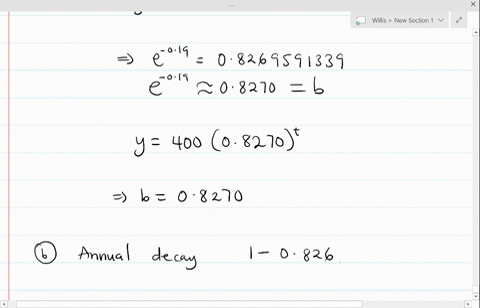 Willis > New Section 1
⇒ e^-0.19 = 0.8269591339
e^-0.19 ≈ 0.8270 = b
y = 400 (0.8270)^t
⇒ b = 0.8270
(b) Annual decay 1 - 0.826